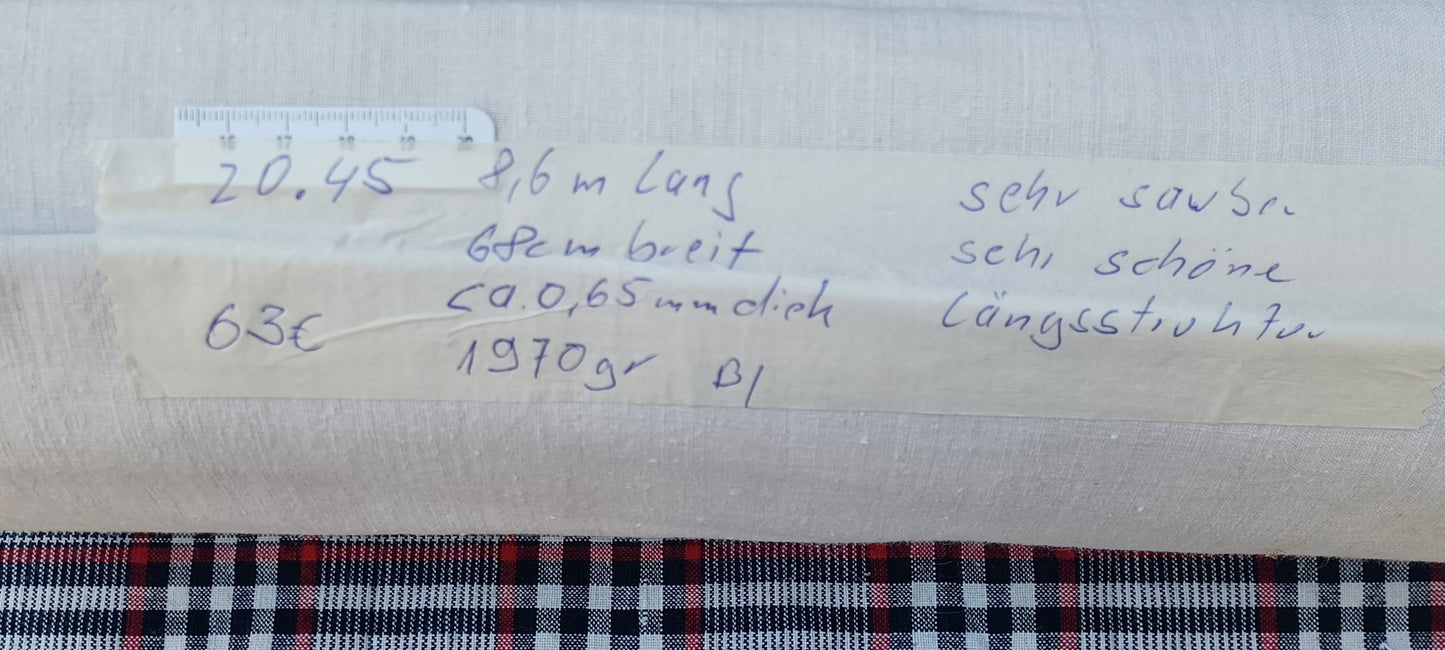 16 17 18 19 20
20.45
63€
8,6 m lang
68cm breit
ca. 0,65 mm dick
1970gr Bl
sehr sauber
sehr schöne
Längsstruktur